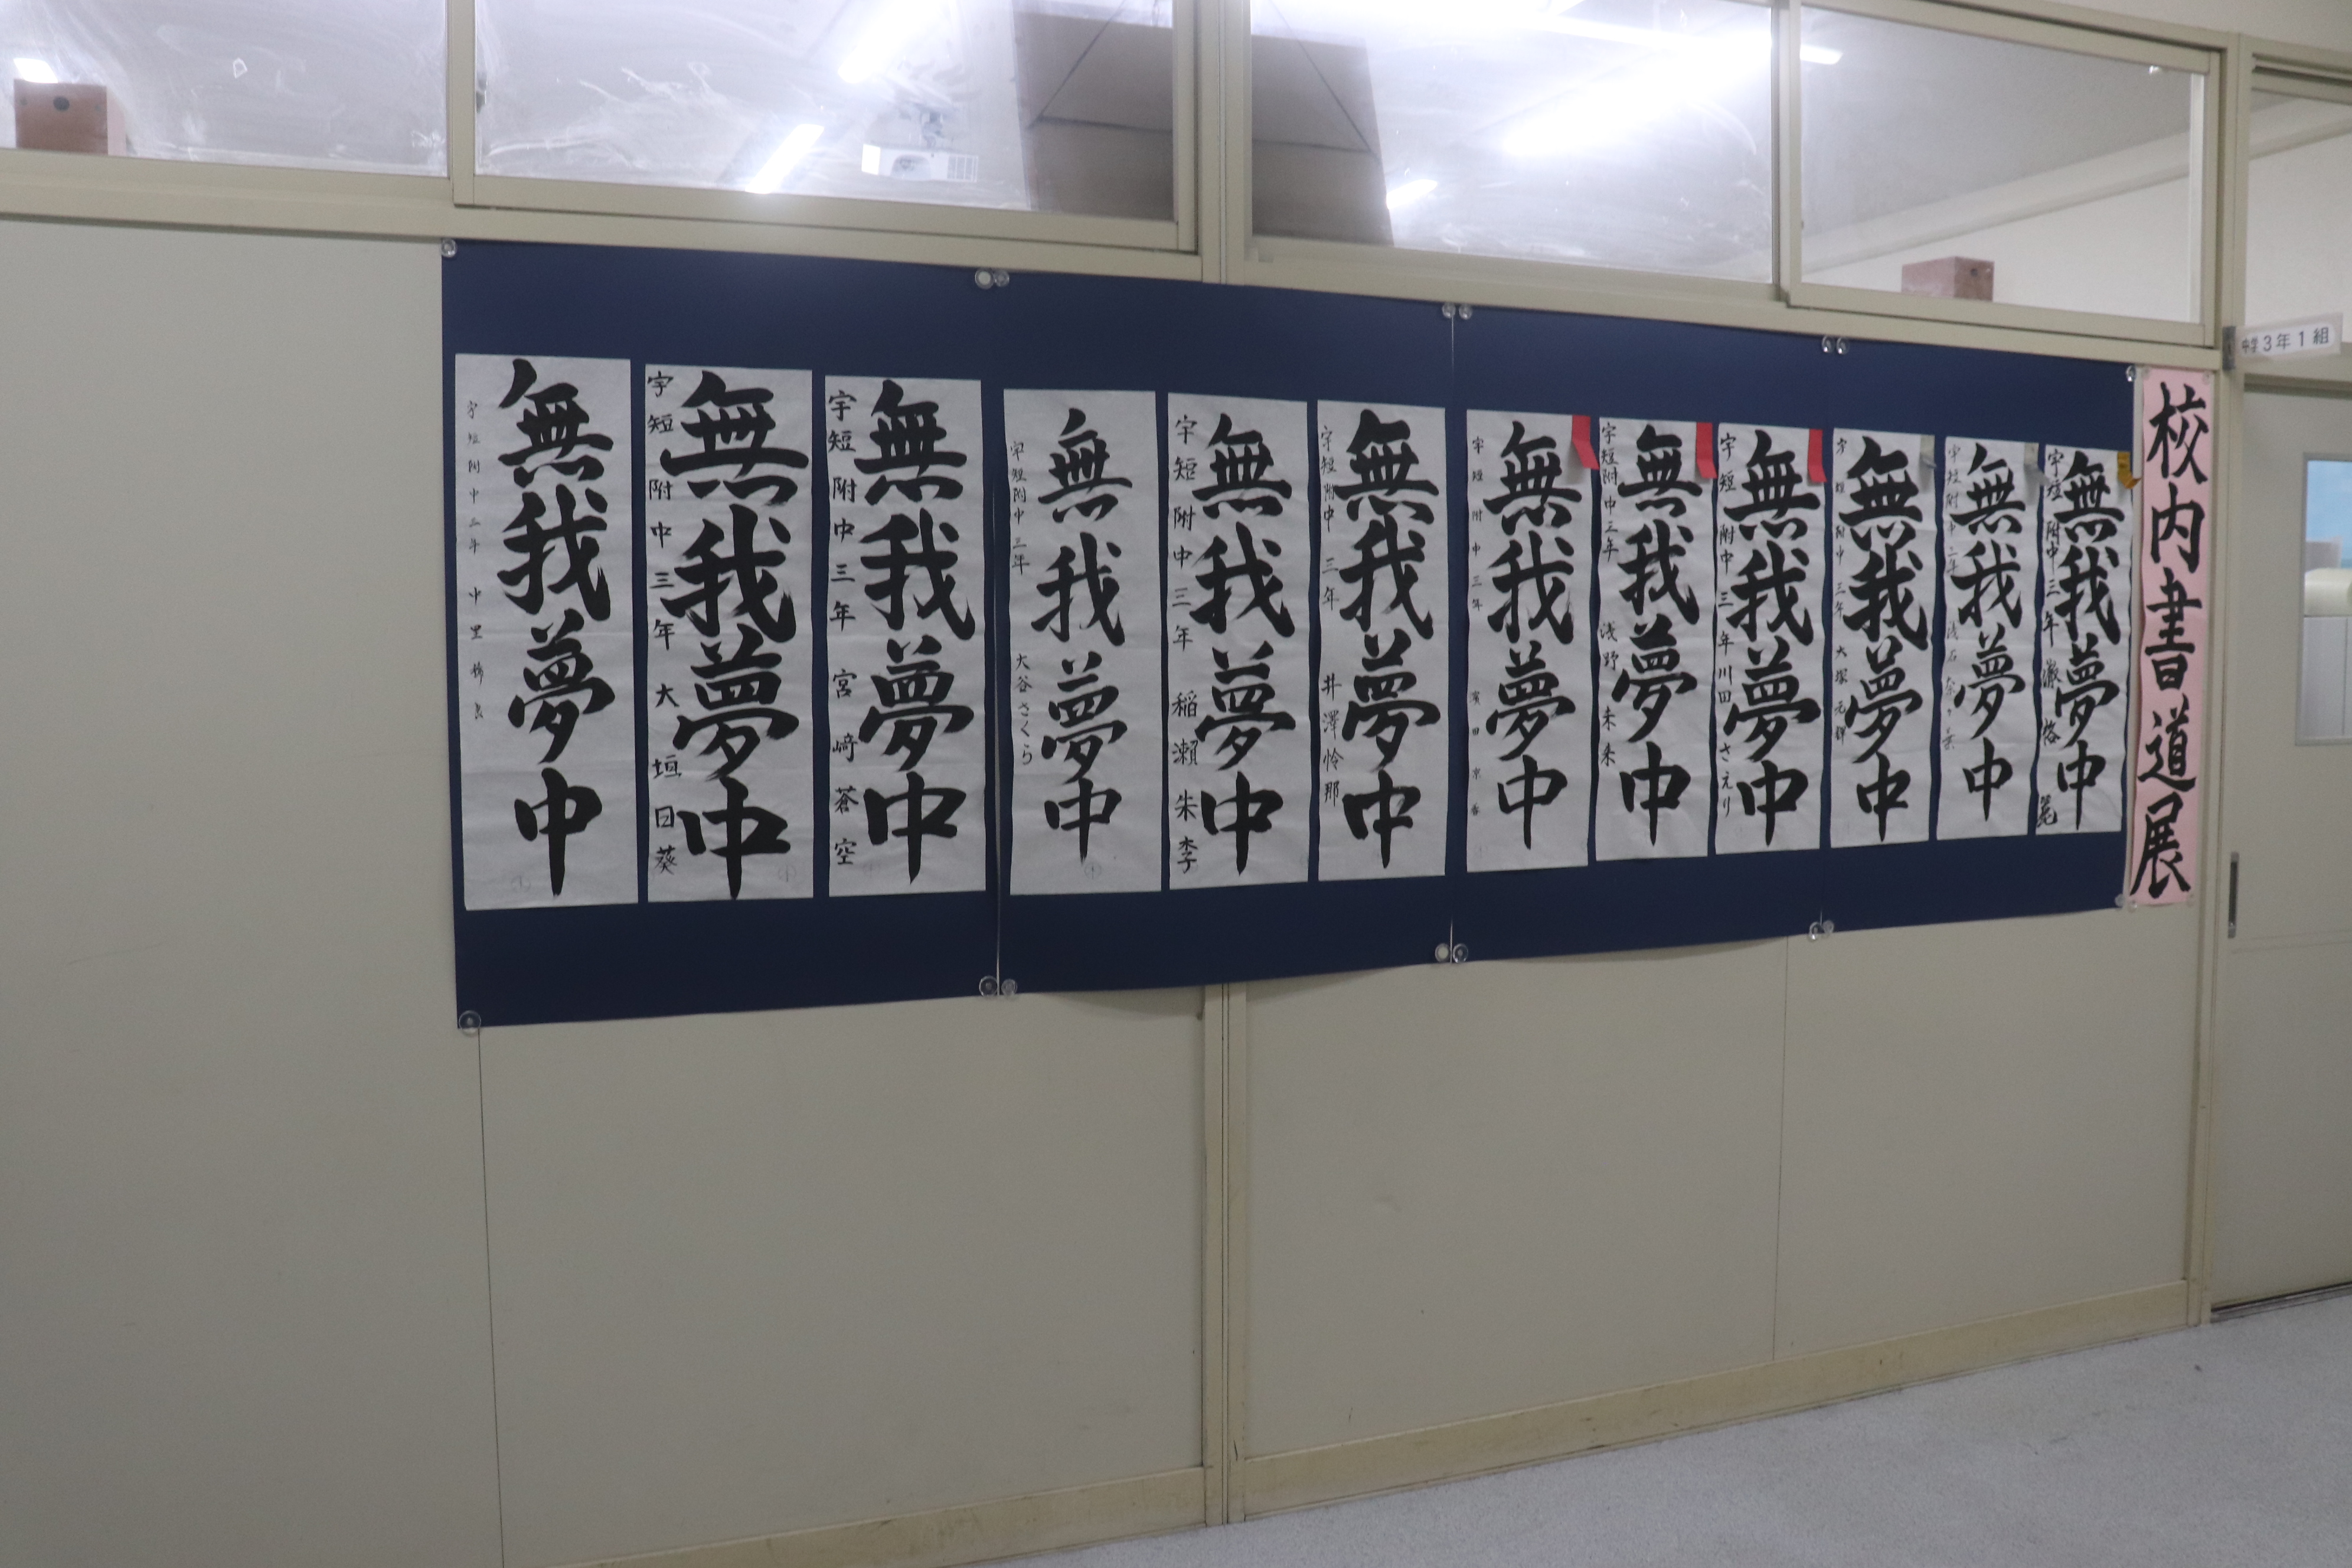 中学3年1組
校内書道展
無我夢中
宇短附中三年
無我夢中
宇短附中三年
無我夢中
宇短附中三年 大塚元輝
無我夢中
宇短附中三年 川田さえり
無我夢中
宇短附中三年 浅野未来
無我夢中
宇短附中三年 濱田京香
無我夢中
宇短附中三年 井澤怜那
無我夢中
宇短附中三年 稲瀬朱李
無我夢中
宇短附中三年 大谷さくら
無我夢中
宇短附中三年 宮﨑蒼空
無我夢中
宇短附中三年 大垣日葵
無我夢中
宇短附中三年 中里